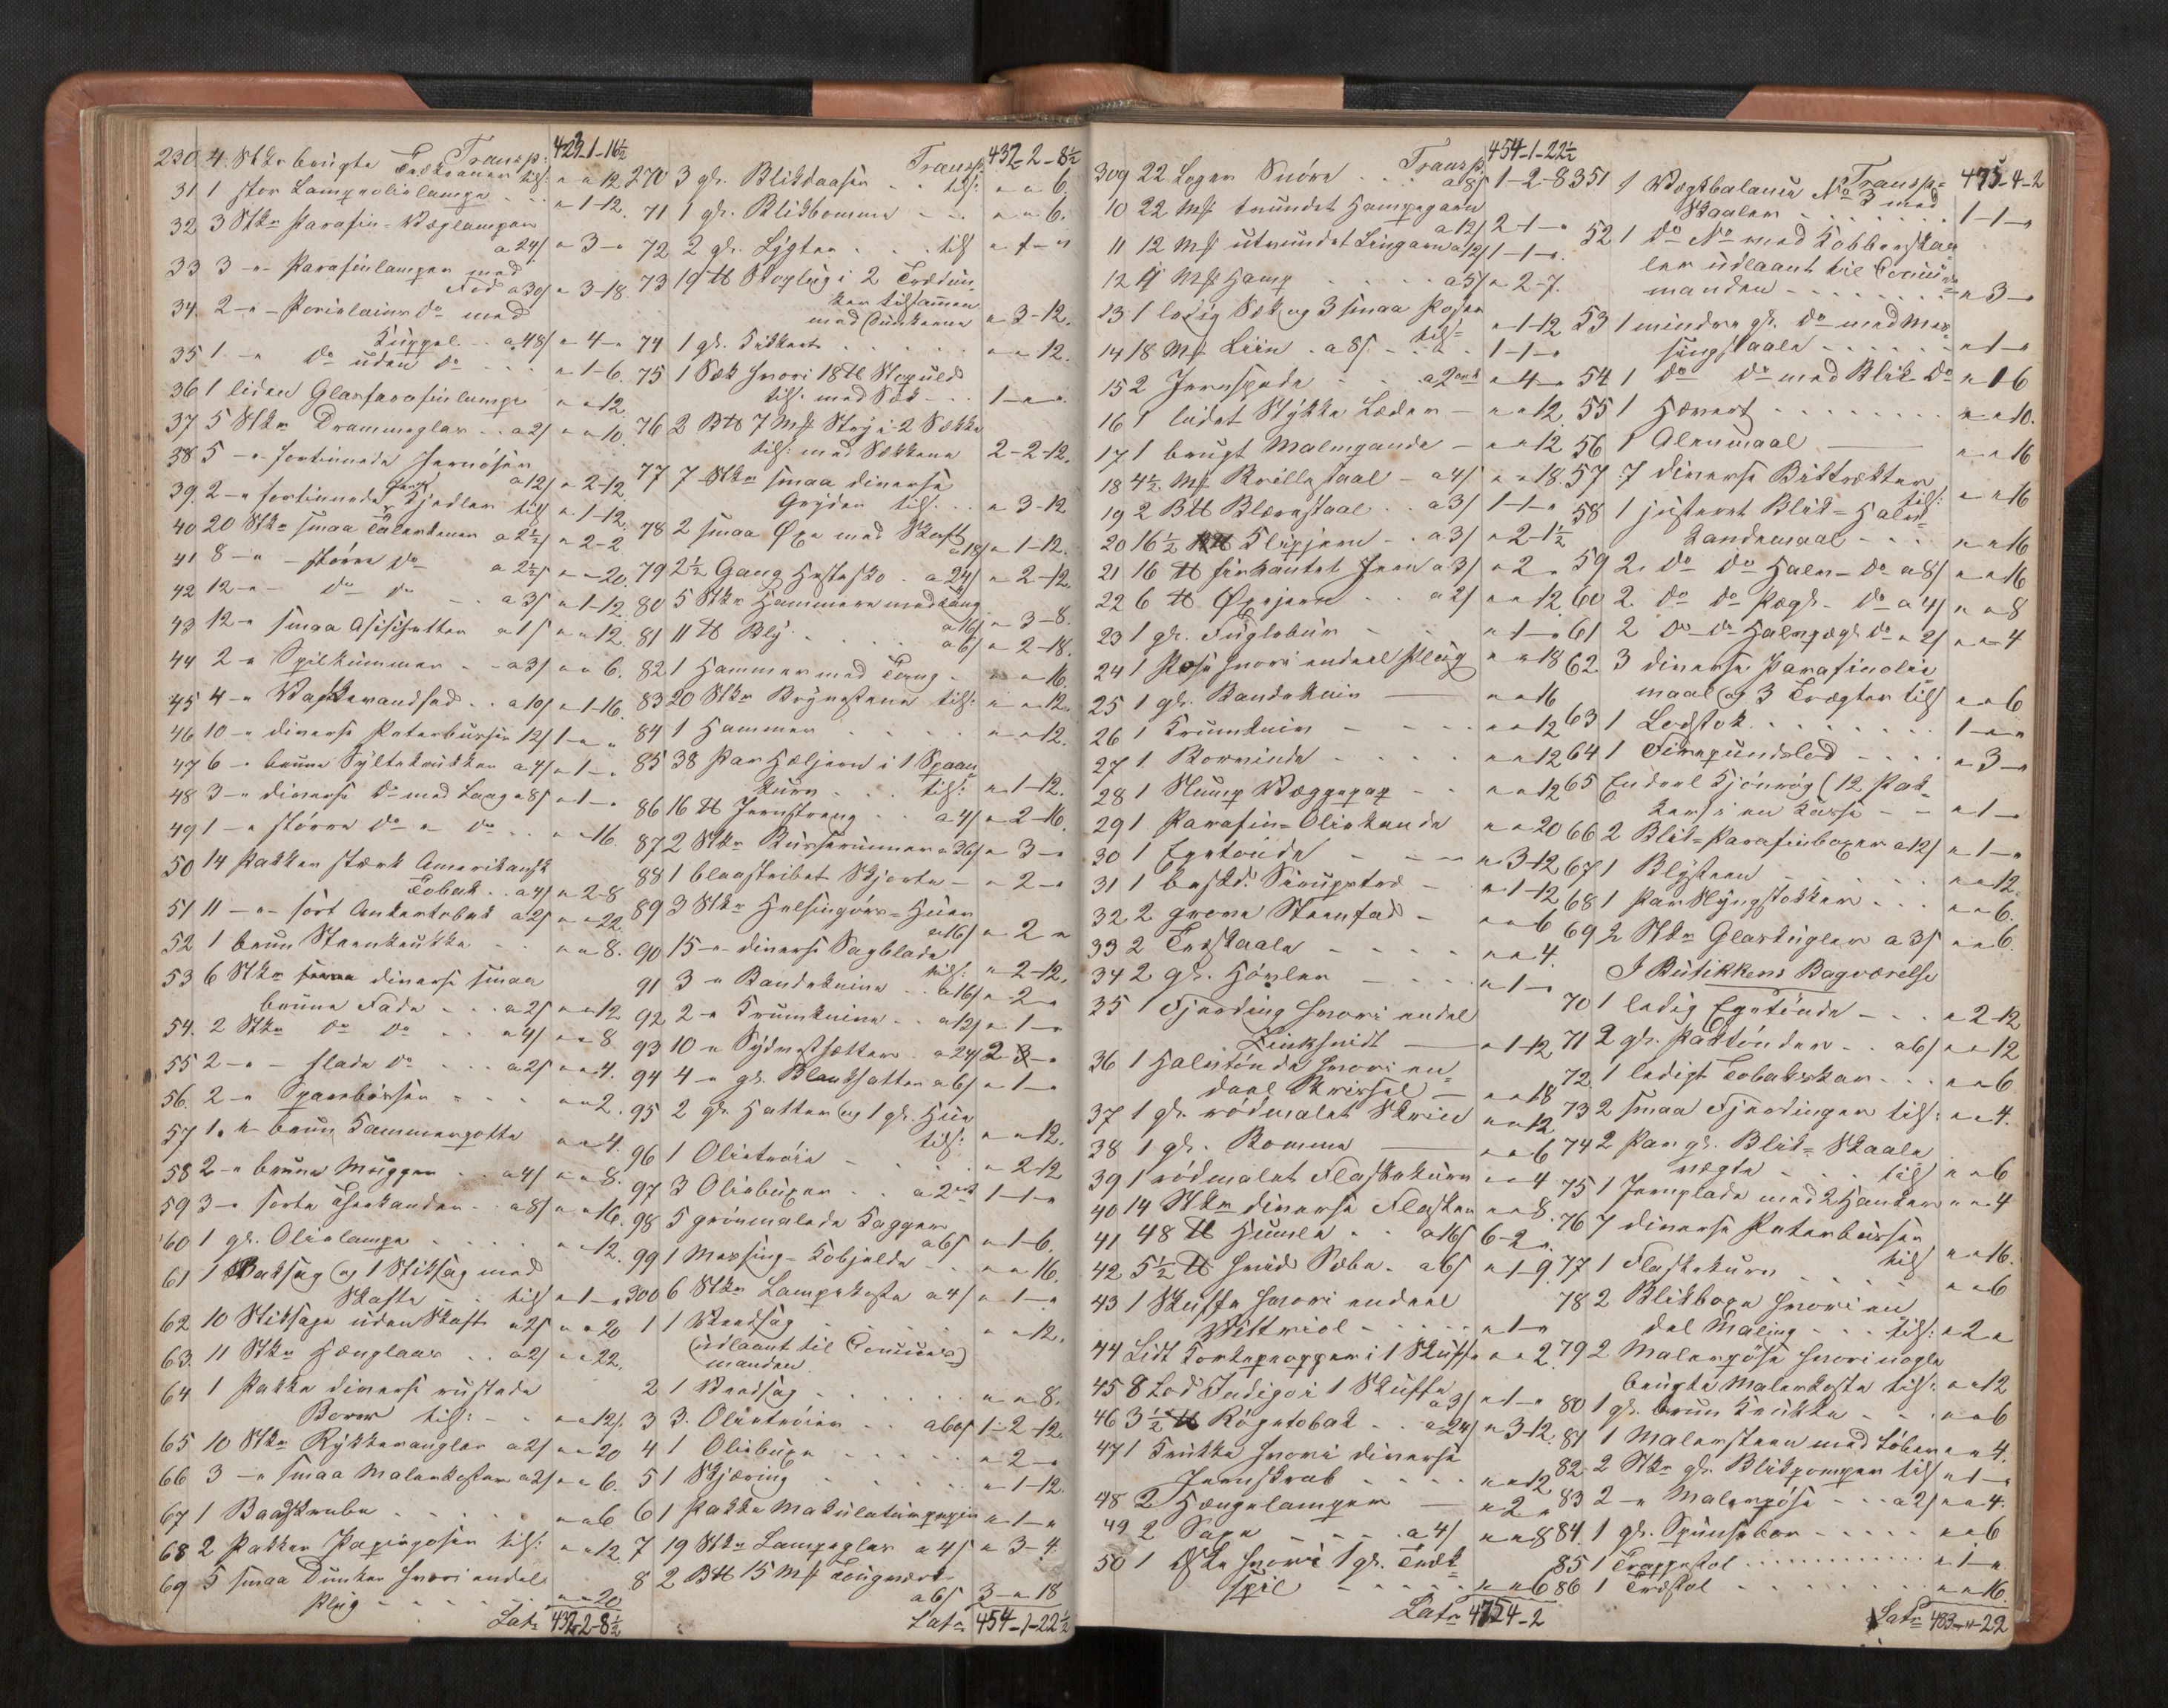 Transp: 423-1-16½
230 4 Stkr brugte Trækraner tils: " " 12
31 1 stor Lampeolielampe " 1-12.
32 3 Stkr Parafin-Væglamper
a 24/ " 3 - "
33 3 - " - Parafinlamper med
Fod a 30/ " 3-18.
34. 2 - " - Porcelains Do med
Kuppel a 48/ " 4 - "
35 1. - " Do uden Do " 1-6.
36 1 liden Glasparafinlampe " " 12.
37 5 Stkr Drammeglas a 2/ " " 10.
38 5 - " fortinnede Jernøser
a 12/ " 2-12.
39. 2 - " fortinnede Jern Kjedler tils " 1-12.
40 20 Stkr smaa Talerkener a 2½/ " 2-2
41 8 - " - større Do a 2½/ " - 20.
42 12 - " - Do Do a 3/ " 1-12.
43 12 - " smaa Asisjetter a 1/ " " 12.
44 2 - " Spilkummer a 3/ " " 6.
45 4 - " Vaskevandsfad a 10/ " 1-16.
46 10 - " diverse Peterbusser 12/ 1 - " "
47 6 - " brune Syltekrukker a 4/ " 1 - "
48 3 - " diverse Do med Laag a 8/ " 1 - "
49 1 - " større Do " Do " " 16.
50 14 Pakker stærk Amerikansk
Tobak a 4/ " 2-8
51 11 - " - sort Ankertobak a 2/ " " 22
52 1 brun Steenkrukke " " 8.
53 6 Stkr diverse smaa
brune Fade a 2/ " " 12
54. 2 Stkr Do Do a 4/ " " 8
55 2 - " - flade Do a 2/ " " 4.
56. 2 - " Sparebøsser " " 2.
57 1. " brun Kammerpotte " " 4.
58 2 - " brune Mugger a 4/ " " 8.
59 3 - " sorte Theekander a 8/ " " 16.
60 1 gl. Olielampe " " 12.
61 1 Baksag og 1 Stiksag med
Skafte tils " 1 - "
62 10 Stiksage uden Skaft a 2/ " " 20
63. 11 Stkr Hænglaas a 2/ " " 22.
64 1 Pakke diverse rustede
Borer tils: " " 12/.
65 10 Stkr Rykkeangler a 2/ " " 20
66 3 - " smaa Malerkoster a 2/ " " 6.
67 1 Baadskrabe " " 6
68 2 Pakker Papirposer tils: " " 12.
69 5 smaa Dunker hvori endel
Plug " " 20
Lat: 432-2-8½
Transp. 432-2-8½
270 3 gl. Blikdaaser tils: " " 6.
71 1 gl. Blikbomme " " 6.
72 2 gl. Lygter tils " 1 - "
73 19 ℔ Skoplug i 2 Trædun-
ker tilsammen
med Dunkerne " 3-12.
74 1 gl. Kikkert " " 12.
75 1 Sæk hvori 18 ℔ Stopuld
tils: med Sæk 1 - " "
76 2 B℔ 7 Mk Stry i 2 Sække
tils: med Sækkene 2-2-12.
77 7 Stkr smaa diverse
Gryder tils. " 3-12
78 2 smaa Øxe med Skaft
a 18/ " 1-12.
79 2½ Gang Hestesko a 24/ " 2-12.
80 5 Stkr Hammere med Tang
a 16/ " 3-8.
81 11 ℔ Bly a 6/ " 2-18.
82 1 Hammer med Tang " " 16.
83 20 Stkr Brynestene tils: " " 12.
84 1 Hammer " " 12.
85 38 Par Hæljern i 1 Spaan-
kurv tils: " 1-12.
86 16 ℔ Jernstreng a 4/ " 2-16.
87 2 Stkr Busseruner a 36/ " 3 - "
88 1 blaastribet Skjorte " 2 - "
89 3 Stkr Helsingørs-Huer
a 16/ " 2 "
90 15 - " diverse Sagblade
tils: " 2-12.
91 3 - " Bandekniver a 16/ " 2 - "
92 2 - " Krumknive a 12/ " 1 - "
93 10 - " Sydvesthætter a 24/ 2 - "
94 4 - " gl. Blankhatter a 6/ " 1 - "
95 2 gl. Hatter og 1 gl. Hue
tils: " " 12.
96 1 Olietrøie " 2-12
97 3 Oliebuxer a 2 ort 1-1 - "
98 5 grønmalede Kagger
a 6/ " 1-6.
99 1 Messing-Kobjelde " " 16.
300 6 Stkr Lampekoste a 4/ " 1 - "
1 1 Vendsag " " 12.
(udlaant til Tommer-
manden)
2 1 Vendsag " " 8.
3 3. Olietrøier a 60/ 1-2-12.
4 1 Oliebuxe " 2 - "
5 1 Skjæring " 1-12.
6 1 Pakke Makulaturpapir " 1 - "
7 19 Stkr Lampeglas a 4/ " 3-4.
8 2 B℔ 15 Mk Tougværk
a 6/ 3 - " 18
Lat: 454-1-22½
Transp. 454-1-22½
309 22 Loger Snøre a 8/ 1-2-8
10 22 Mk tvundet Hampegarn
a 12/ 2-1 - "
11 12 Mk utvundet Lingarn a 12/ 1-1 - "
12 9 Mk Hamp a 5/ " 2-7.
13 1 ledig Sæk og 3 smaa Poser
tils: " 1-12
14 18 Mk Liin a 8/ 1-1 - "
15 2 Jernspade a 2 ort " 4 - "
16 1 lidet Stykke Læder " " 12.
17 1 brugt Malmgande " " 12
18 4½ Mk Brillestaal a 4/ " " 18.
19 2 B℔ Blærestaal a 3/ 1-1 - "
20 16½ ℔ Slupjern a 3/ " 2-1½
21 16 ℔ firkantet Jern a 3/ " 2 "
22 6 ℔ Øxejern a 2/ " " 12
23 1 gl. Fuglebuur " 1 - "
24 1 Pose hvori endeel Plug " " 18
25 1 gl. Bandekniv " " 16
26 1 Krumkniv " " 12
27 1. Borvinde " " 12
28 1 Slump Væggepap " " 12
29 1 Parafin-Oliekande " " 20
30 1 Egetønde " 3-12
31 1 besk: Siruppetræ " 1-12
32 2 grove Steenfad " " 6
33 2 Træskaale " " 4.
34 2 gl. Høvler " 1 - "
35 1 Fjerding hvori endel
Zinkhvidt " 1-12
36 1 Halvtønde hvori en-
deel Skrissel " " 18
37 1 gl. rødmalet Skrin " " 12
38 1 gl. Bomme " " 6
39 1 rødmalet Flaskekurv " " 4
40 14 Stkr diverse Flasker " " 8.
41 48 ℔ Humle a 16/ 6-2 ".
42 5½ ℔ hvid Sæbe a 6/ " 1-9.
43 1 Skuffe hvori endeel
Vittriol " 1 - "
44 Lidt Korkepropper i 1 Skuffe " " 2.
45 8 Lod Indigo i 1 Skuffe
a 3/ " 1 - "
46 3½ ℔ Røgetobak a 24/ " 3-12.
47 1 Krukke hvori diverse
Jernskrab " " 12
48 2 Hængelamper " 2 "
49 2 Saxe a 4/ " " 8
50 1 Æske hvori 1 gl. Træk-
spil " " 6
Latr 475-4-2
Transp. 475-4-2
351 1 Vægtbalance No 3 med
Skaaler 1-1 - "
52 1 Do No med Kobberskaa-
ler udlaant til Tommer-
manden " 3 - "
53 1 mindre gl. Do med Mes-
singskaale " 1 - "
54 1 Do Do med Blik Do " 1 6
55 1 Hævert " " 10.
56 1 Alenmaal " " 16
57 7 diverse Bliktrækter
tils: " " 16
58 1 justeret Blik-Halv-
kandemaal " " 16
59 2. Do Do Halv - Do a 8/ " " 16
60 2 Do Do Pægl - Do a 4/ " " 8
61 2 Do - Do Halvpægl Do a 2/ " " 4
62. 3 diverse Parafinolie-
maal og 3 Trægter tils " " 6
63 1 Lodstok 1 - " "
64 1 Firepundslod " 3 - "
65 Endeel Kjønrøg (12 Pak-
ker) i en Kasse " 1 - "
66 2 Blik-Parafinboxer a 12/ " 1 - "
67 1 Blysteen " " 12.
68 1 Par Slyngstokker " " 6.
69 2 Stkr Glaskugler a 3/ " " 6.
I Butikkens Bagværelse
70 1 ledig Egetønde " 2-12
71 2 gl. Paktønder a 6/ " " 12
72. 1 ledigt Tobakskar " " 6
73 2 smaa Fjerdinger tils: " " 4.
74 2 Par gl. Blik-Skaale
vægte tils " " 6
75 1 Jernplade med 2 Hanker " " 4
76 7 diverse Peterbusser
tils " " 16.
77 1 Flaskekurv " " 6
78 2 Blikboxe hvori en
del Maling tils: " 2 "
79 2 Malerpøse hvori nogle
brugte Malerkoste tils: " " 12
80 1 gl. brun Krukke " " 6
81 1 Malersteen med Løber " " 4.
82. 2 Stkr gl. Blikpomper tils " 1 - "
83 2 - " Malerpøse a 2/ " " 4.
84. 1 gl. Spunsebor " " 6
85 1 Trappestol " 1 - ".
86 1 Træstol " " 16.
Latr 483-4-22